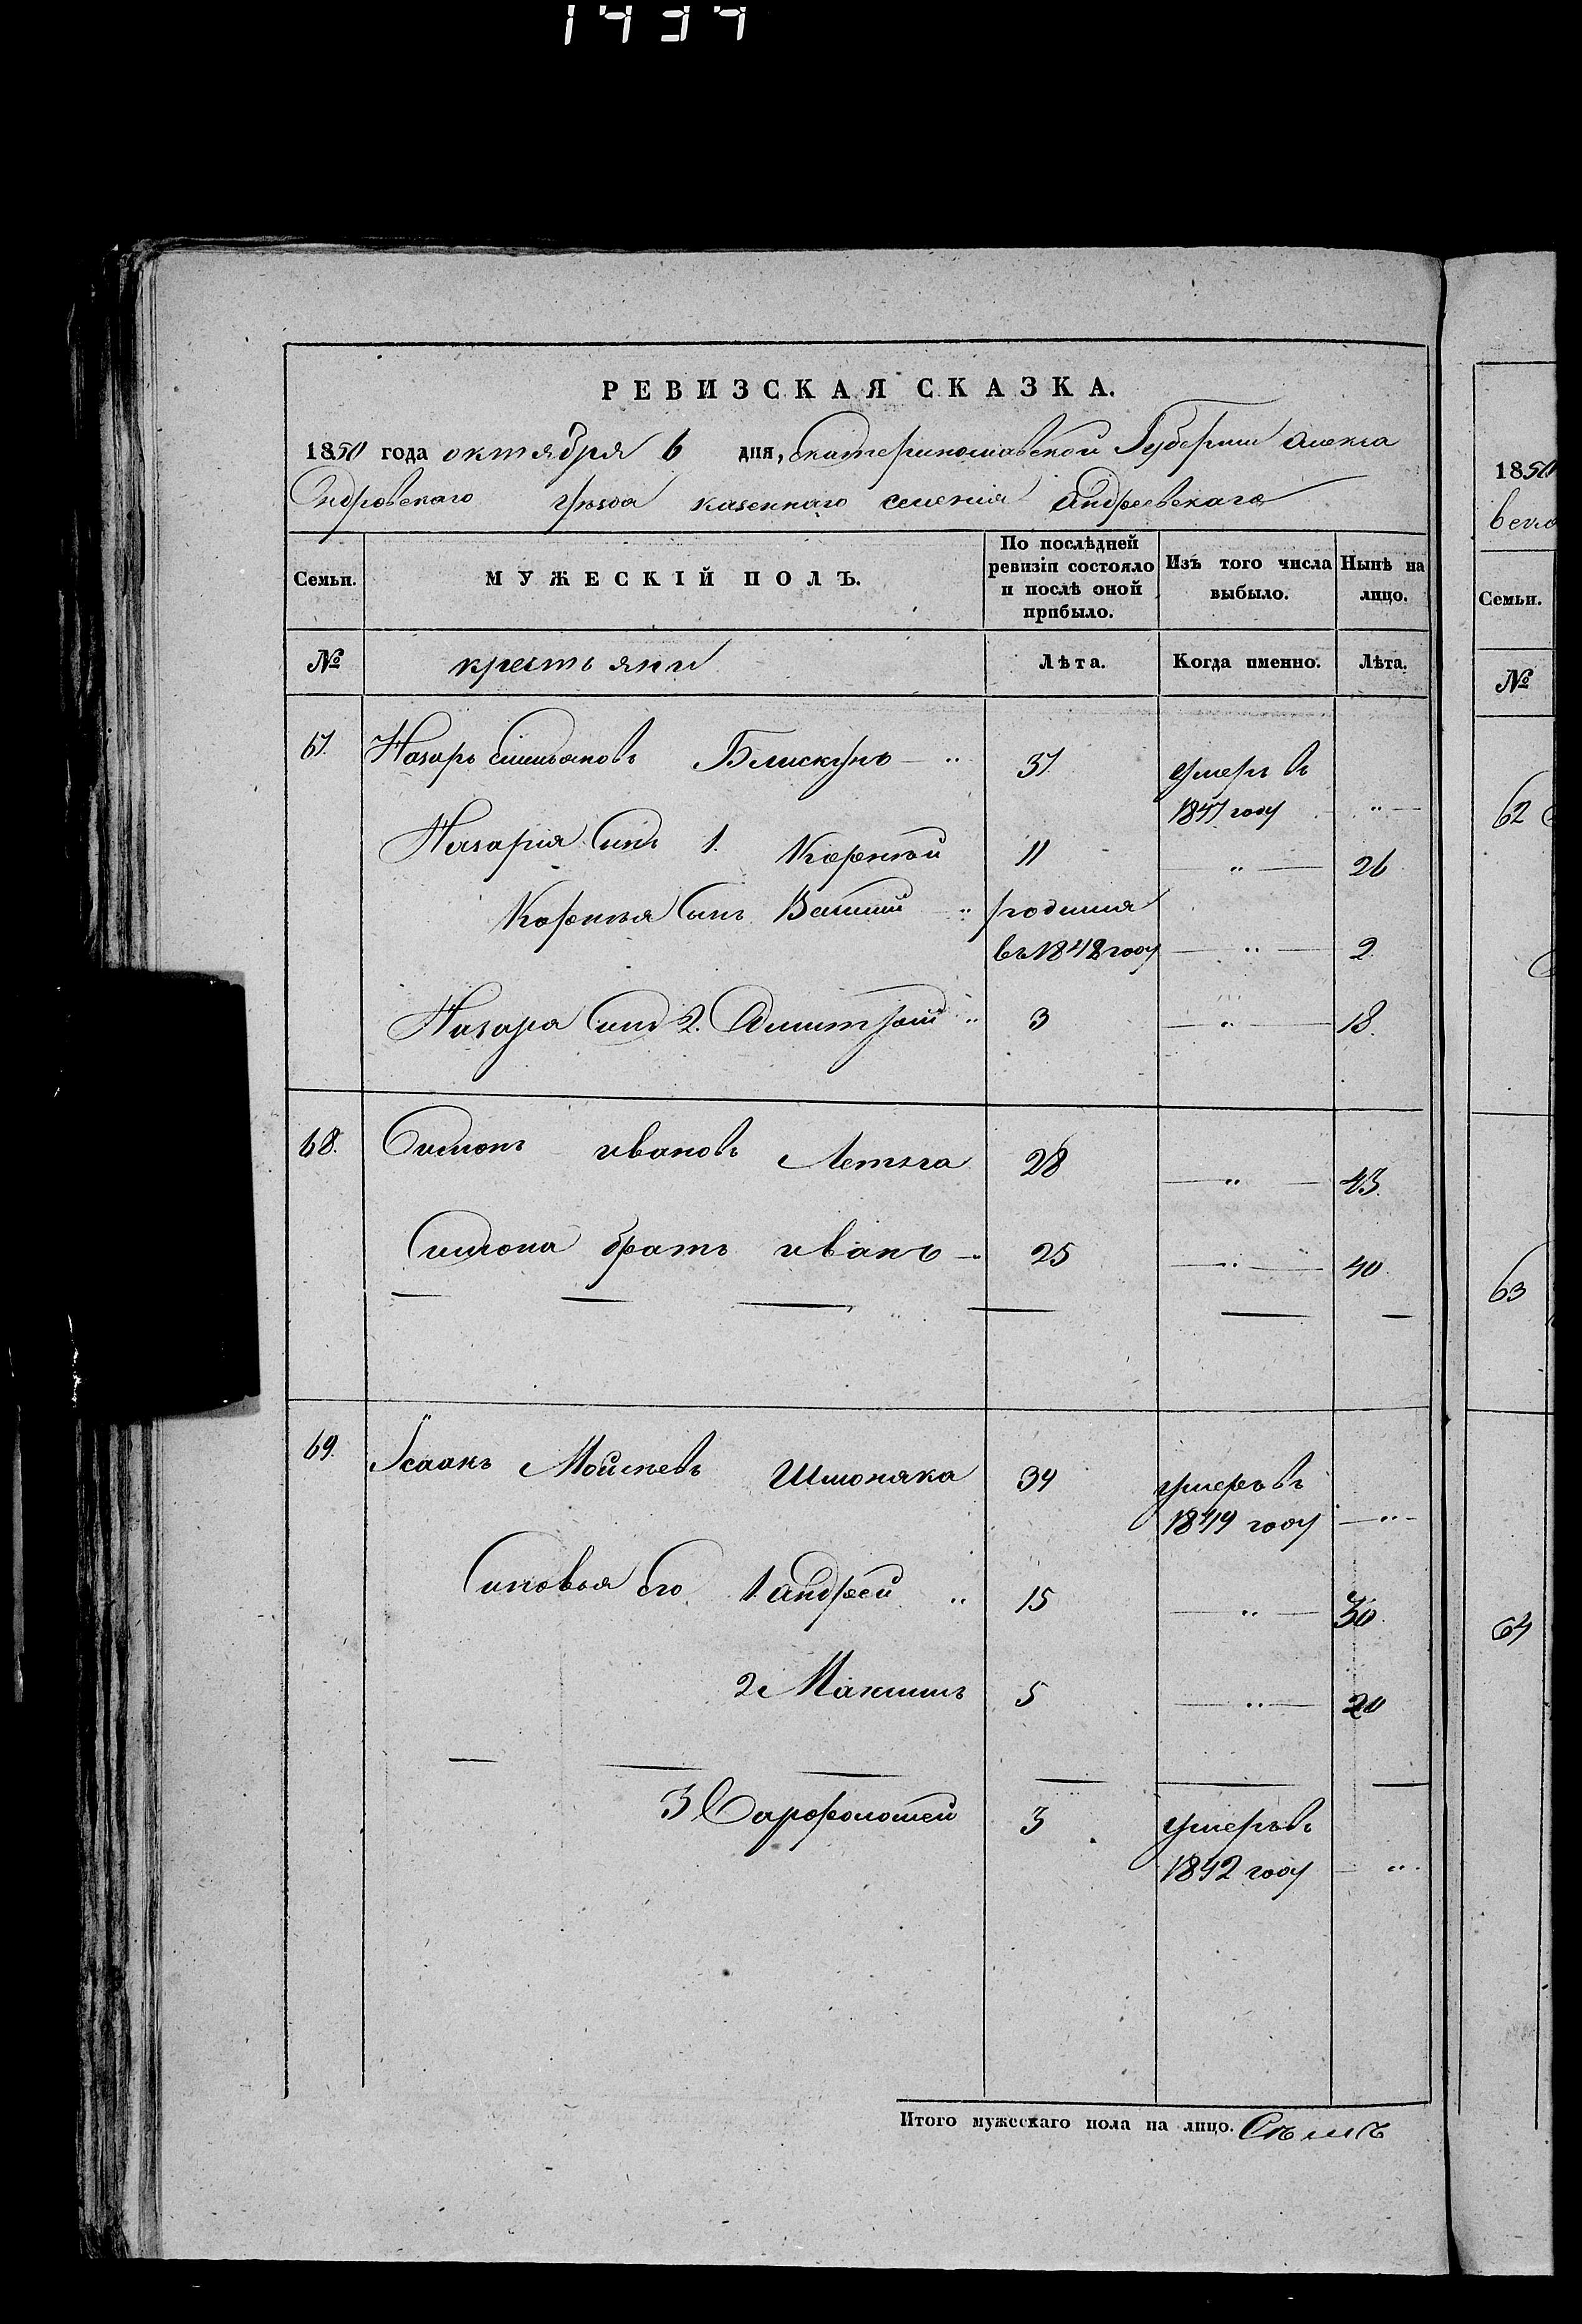 1434
РЕВИЗСКАЯ СКАЗКА.
1850 года октября 6 дня, Екатеринославской Губернии алекса
Ондровскаго уѣзда казеннаго селенія андреевскаго
Семьи. МУЖЕСКІЙ ПОЛЪ. По послѣдней ревизіи состояло и послѣ оной прибыло. Изъ того числа выбыло. Нынѣ на лицо.
№ крестьяни Лѣта. Когда именно. Лѣта.
67. Назаръ Емельяновъ Блискунъ 37 умеръ въ
1847 году
Назарія Синъ 1. Корнѣй 11 26
Корнѣя Сынъ Василий родился
въ 1848 году 2
Назара Синъ 2. Дмитрѣй 3 18.
68. Симонъ ивановъ Летяга 28 43.
Симона братъ иванъ 25 40
69. Ісаакъ Мойсѣевъ Шимоняка 34 умеръ въ
1849 году
Синовья его 1 андрей 15 30
2 Максимъ 5 20
3 Варфоломей 3 умеръ въ
1842 году
Итого мужескаго пола на лицо. Сѣмъ
1850
Семьи.
№
62
63
64